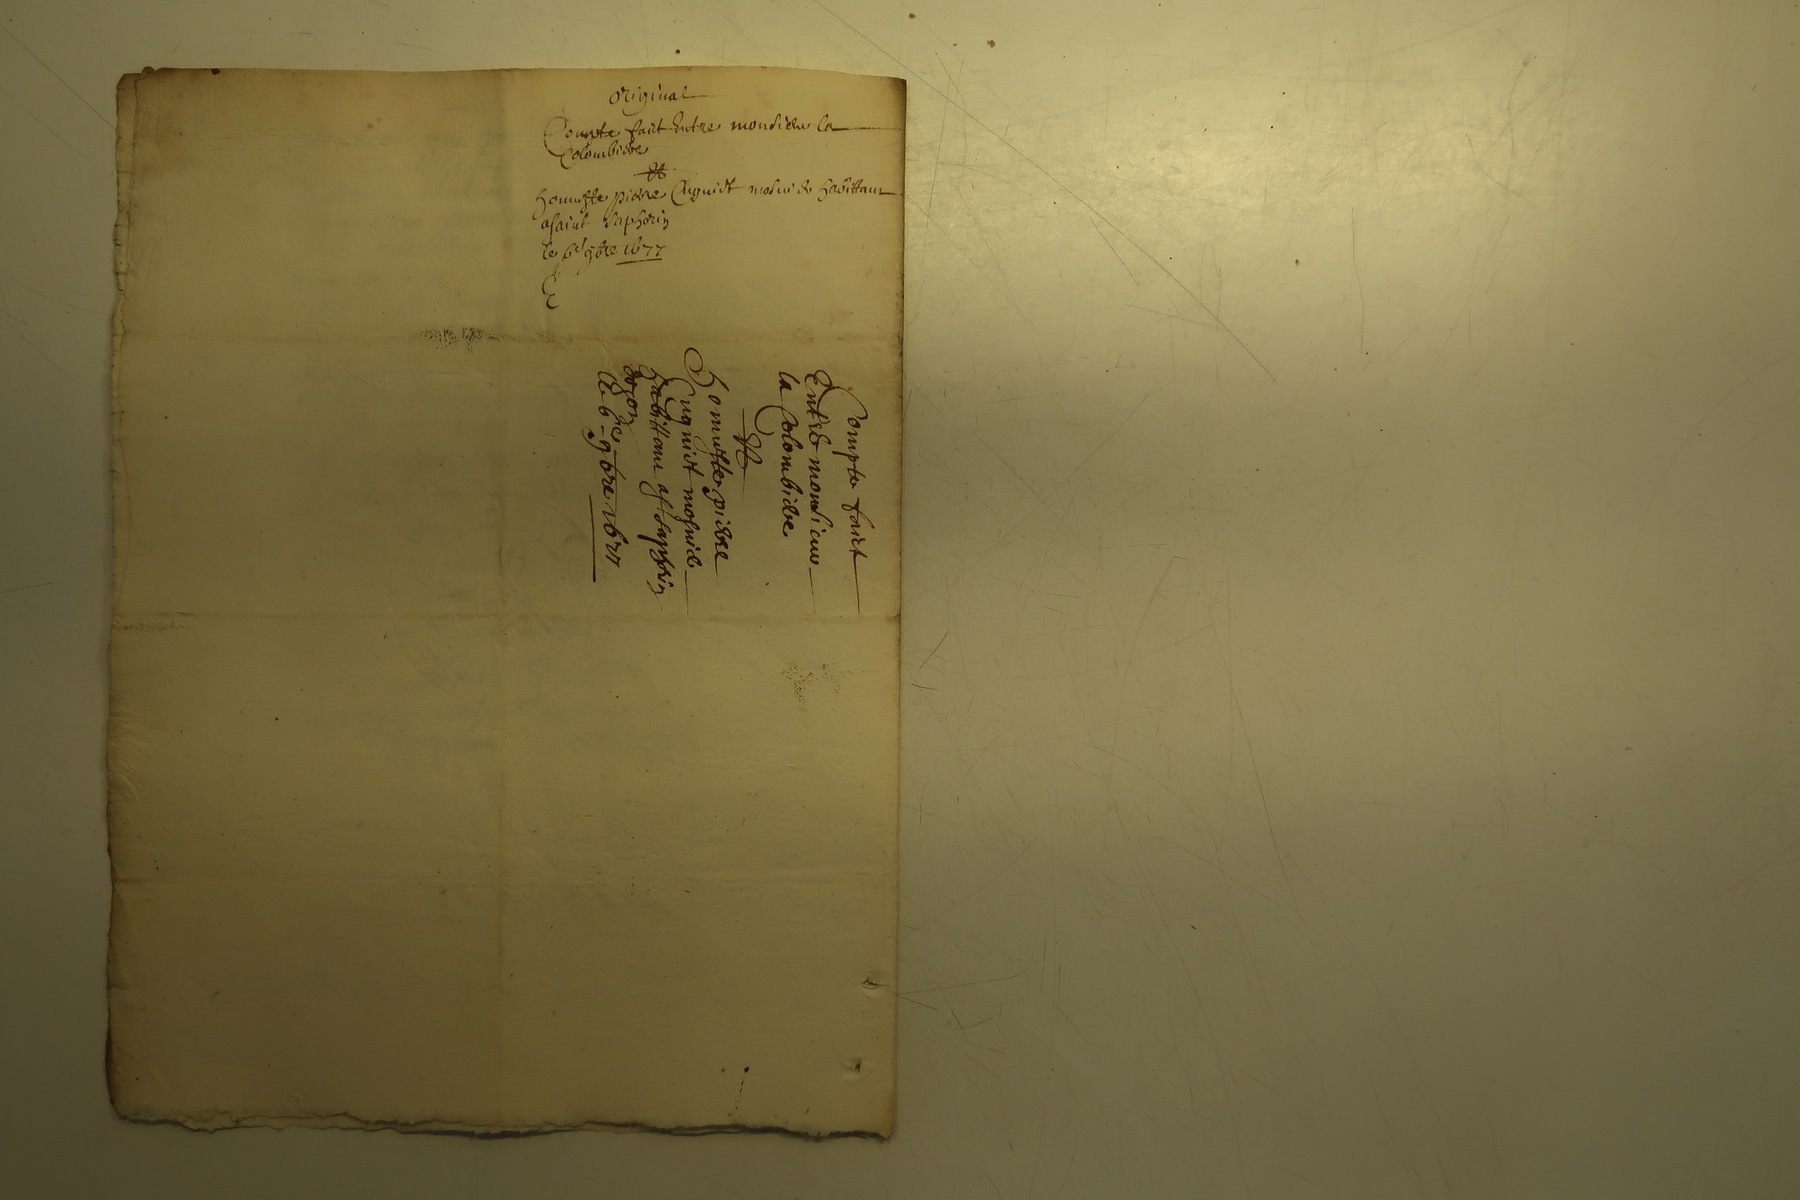 Original
Compte faict Entre monsieur la
Colombiere
Et
honneste pierre Cugniet mosnie habittant
a saint Saphorin
le 6e 9bre 1677
Compte faict
Entre monsieur
la Colombiere
Et
Honneste pierre
Cugniet mosnie
habittant a St Saphorin
le 6e 9bre 1677